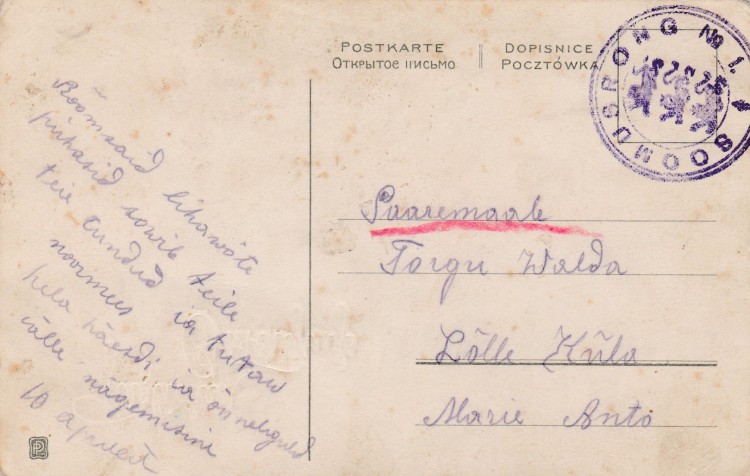 POSTKARTE
ОТКРЫТОЕ ПИСЬМО
DOPISNICE
POCZTÓWKA
SOOMUSRONG № 1.
Rõõmsaid lihawõte
pühasid sowib teile
teie tundud ja tutaw
noormees
hela käendi ja õnneligud
jälle nägemisini
10 aprill
Saaremaale
Torgu Walda
Lõlle Küla
Marie Anto